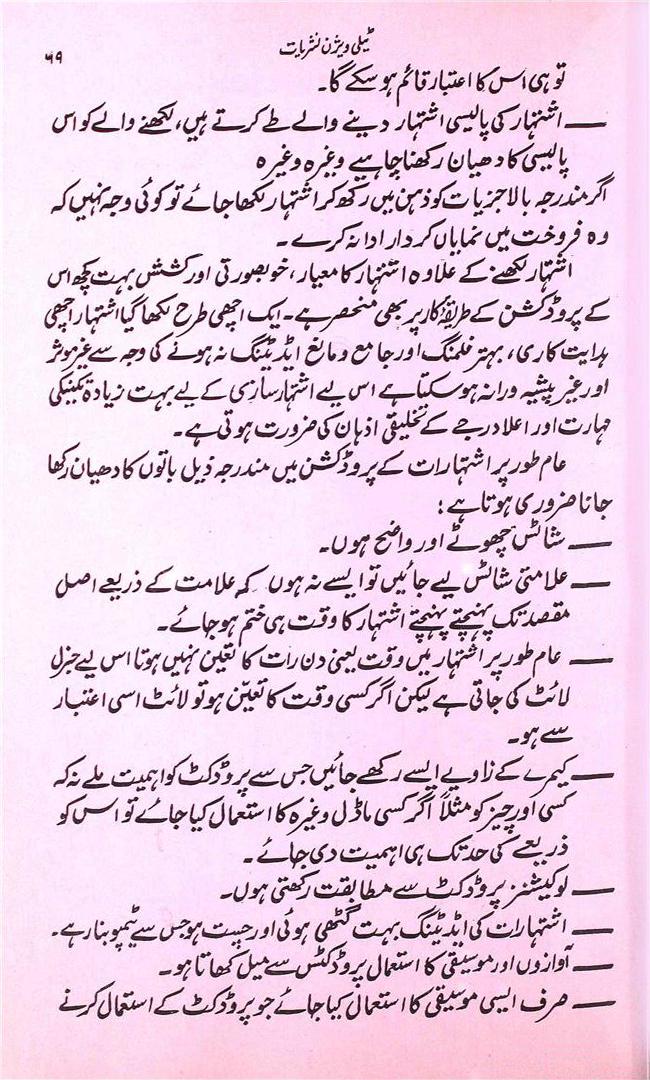 ٹیلی ویژن نشریات
۶۹
تو ہی اس کا اعتبار قائم ہو سکے گا۔
— اشتہار کی پالیسی اشتہار دینے والے طے کرتے ہیں، لکھنے والے کو اس
پالیسی کا دھیان رکھنا چاہیے وغیرہ وغیرہ
اگر مندرجہ بالا جزیات کو ذہن میں رکھ کر اشتہار لکھا جائے تو کوئی وجہ نہیں کہ
وہ فروخت میں نمایاں کردار ادا نہ کرے۔
اشتہار لکھنے کے علاوہ اشتہار کا معیار، خوبصورتی اور کشش بہت کچھ اس
کے پروڈکشن کے طریقۂ کار پر بھی منحصر ہے۔ ایک اچھی طرح لکھا گیا اشتہار اچھی
ہدایت کاری، بہتر فلمنگ اور جامع و مانع ایڈیٹنگ نہ ہونے کی وجہ سے غیر موثر
اور غیر پیشہ ورانہ ہو سکتا ہے اس لیے اشتہار سازی کے لیے بہت زیادہ تکنیکی
مہارت اور اعلا درجے کے تخلیقی اذہان کی ضرورت ہوتی ہے۔
عام طور پر اشتہارات کے پروڈکشن میں مندرجہ ذیل باتوں کا دھیان رکھا
جانا ضروری ہوتا ہے:
— شاٹس چھوٹے اور واضح ہوں۔
— علامتی شاٹس لیے جائیں تو ایسے نہ ہوں کہ علامت کے ذریعے اصل
مقصد تک پہنچتے پہنچتے اشتہار کا وقت ہی ختم ہو جائے۔
— عام طور پر اشتہار میں وقت یعنی دن رات کا تعین نہیں ہوتا اس لیے جنرل
لائٹ کی جاتی ہے لیکن اگر کسی وقت کا تعیّن ہو تو لائٹ اسی اعتبار
سے ہو۔
— کیمرے کے زاویے ایسے رکھے جائیں جس سے پروڈکٹ کو اہمیت ملے نہ کہ
کسی اور چیز کو مثلاً اگر کسی ماڈل وغیرہ کا استعمال کیا جائے تو اس کو
ذریعے کی حد تک ہی اہمیت دی جائے۔
— لوکیشنز پروڈکٹ سے مطابقت رکھتی ہوں۔
— اشتہارات کی ایڈیٹنگ بہت گٹھی ہوئی اور چست ہو جس سے ٹیمپو بنا رہے۔
— آوازوں اور موسیقی کا استعمال پروڈکٹس سے میل کھاتا ہو۔
— صرف ایسی موسیقی کا استعمال کیا جائے جو پروڈکٹ کے استعمال کرنے